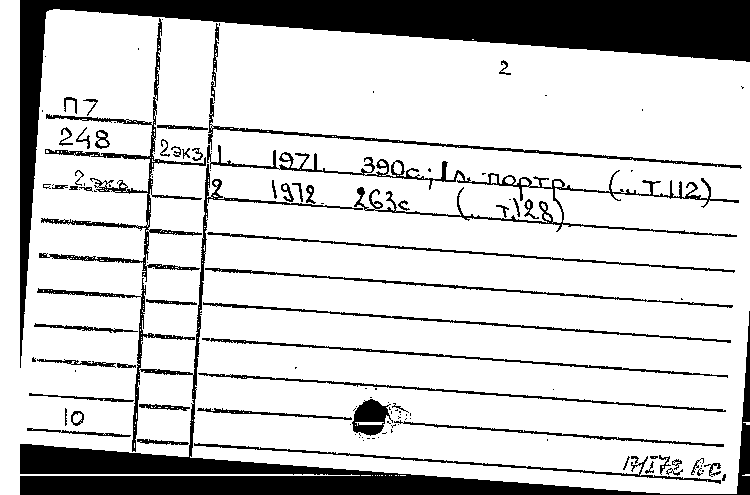 2
П7
248
2экз. 1. 1971. 390с.; 1л. портр. (... т.112)
2экз. 2 1972. 263с (... т.128)
10
17/I72 АС.